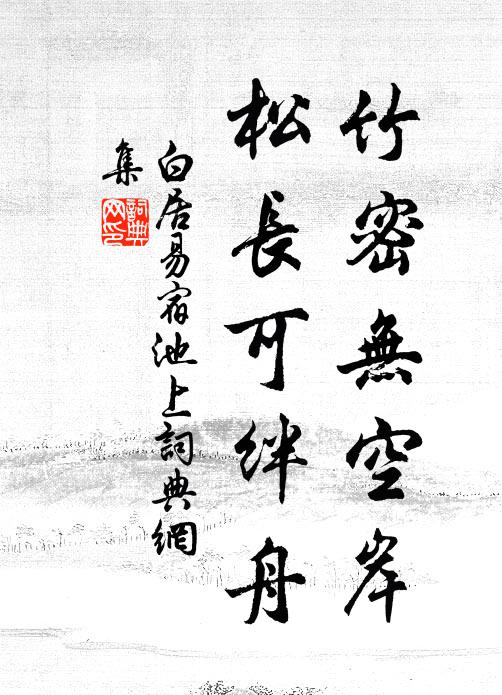 竹密無空岸
松長可絆舟
白居易宿池上詞典網
集
詞典
网印